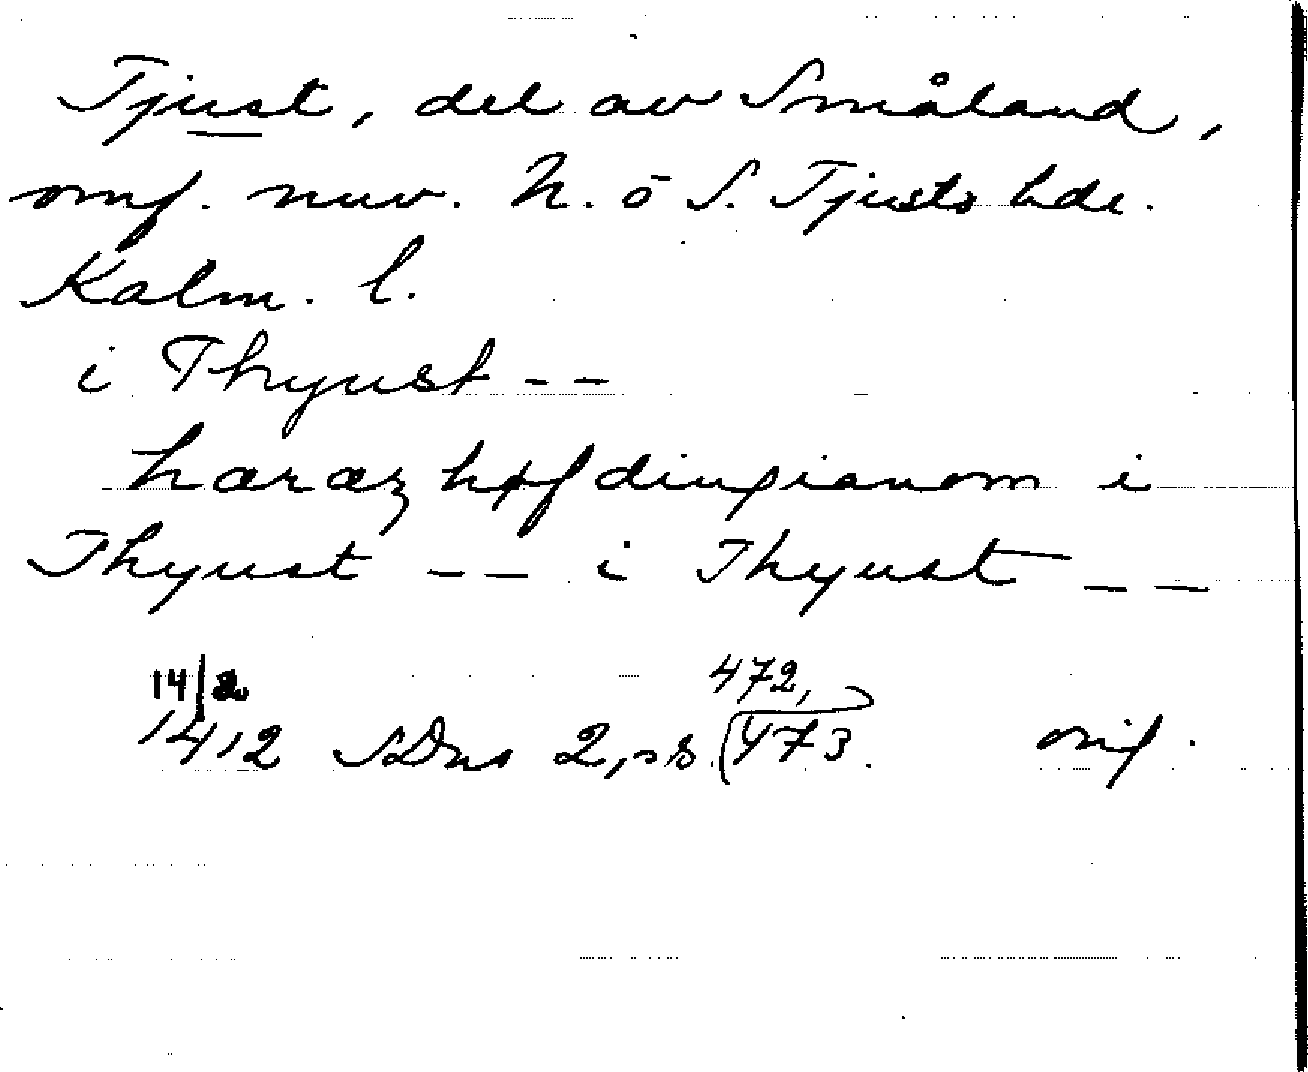 Tjust, del av Småland,
omf. nuv. N. o S. Tjusts hde.
Kalm. l.
i Thyust --
haraz høfdingianom i
Thyust -- i Thyust --
14/2 472,
1412 SDns 2, ss. 473. orig.